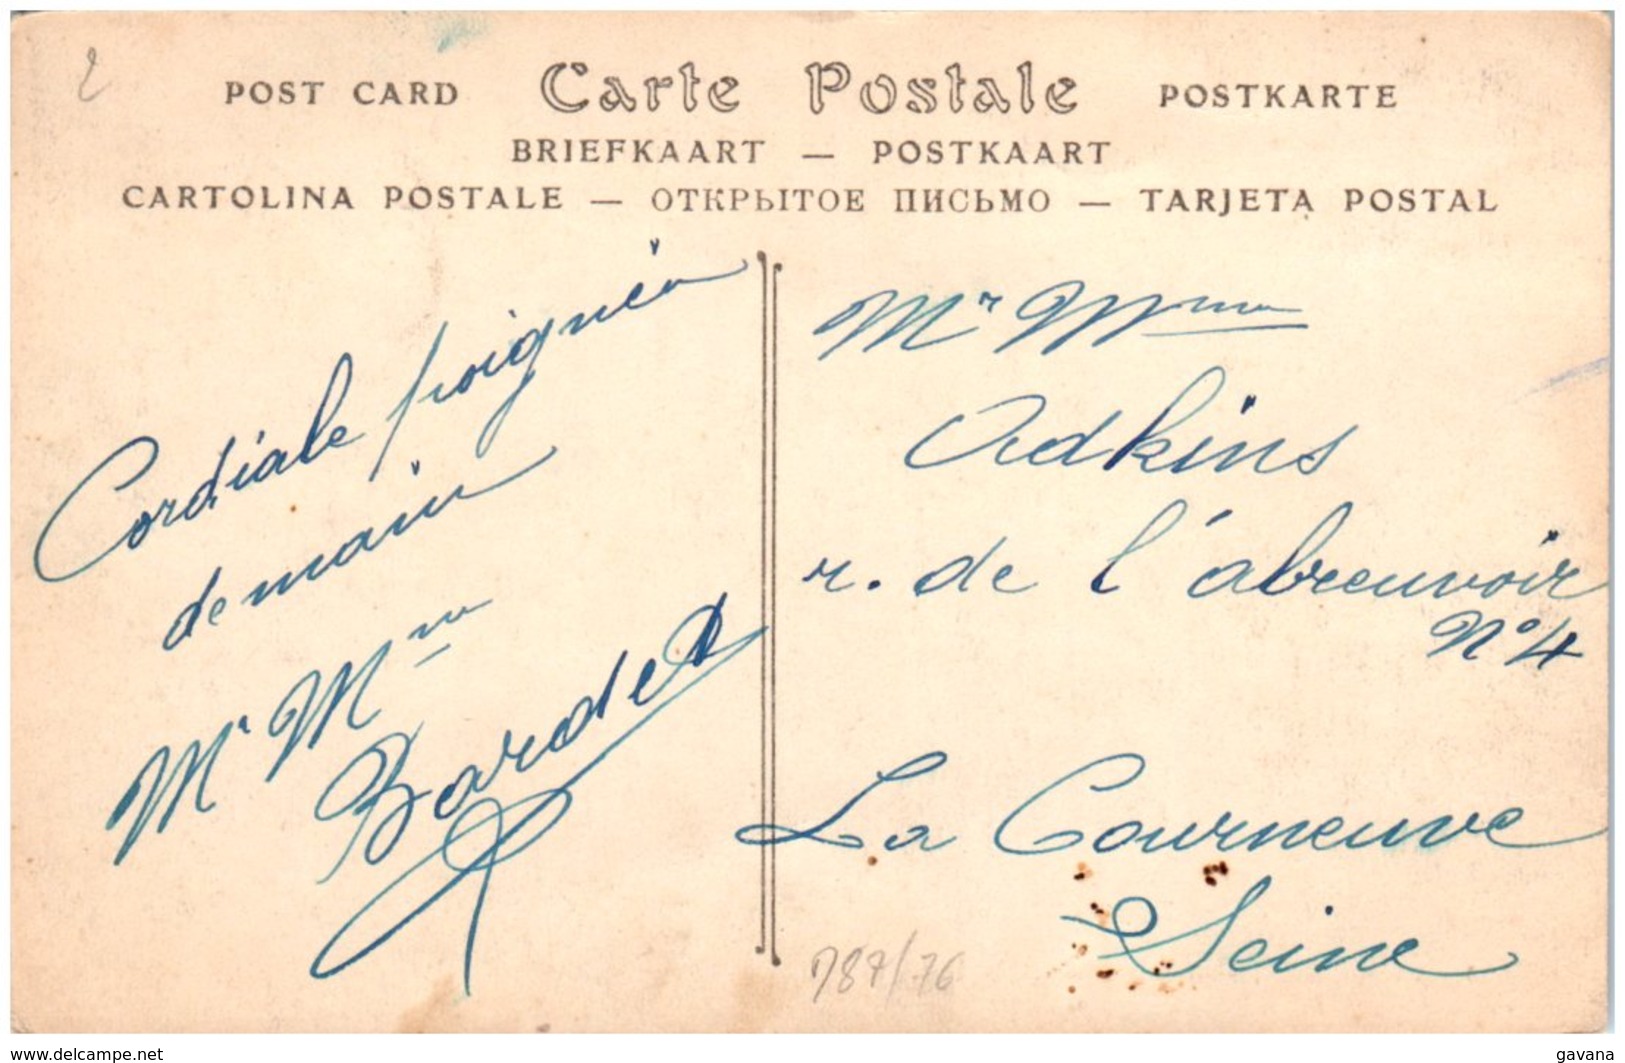 2
POST CARD Carte Postale POSTKARTE
BRIEFKAART — POSTKAART
CARTOLINA POSTALE — ОТКРЫТОЕ ПИСЬМО — TARJETA POSTAL
Cordiale poignée
de main
Mr Mme
Bardet
Mr Mme
Adkins
r. de l'abreuvoir
N° 4
La Courneuve
Seine
787/76
www.delcampe.net
gavana